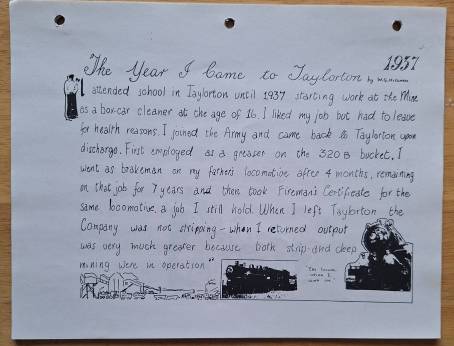 1937
The Year I Came to Taylorton by
I attended school in Taylorton until 1937 starting work at the Mine
as a box-car cleaner at the age of 16. I liked my job but had to leave
for health reasons. I joined the Army and came back to Taylorton upon
discharge. First employed as a greaser on the 320 B bucket, I
went as brakeman on my fathers locomotive after 4 months, remaining
on that job for 7 years and then took Fireman's Certificate for the
same locomotive, a job I still hold. When I left Taylorton the
Company was not stripping - when I returned output
was very much greater because both strip and deep
mining were in operation"